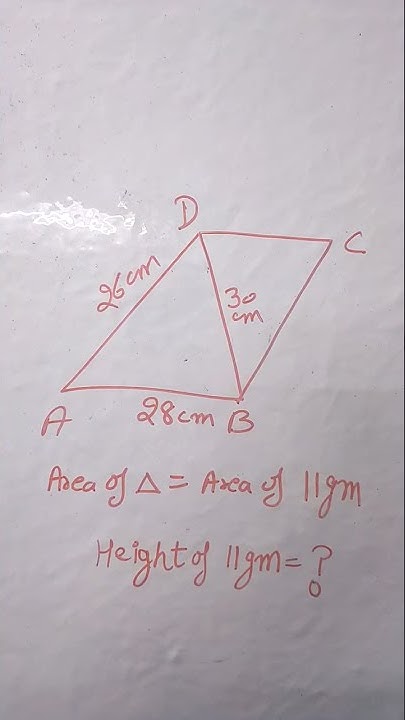 D
C
26 cm
30
cm
A
28 cm
B
Area of △ = Area of ||gm
Height of ||gm = ?